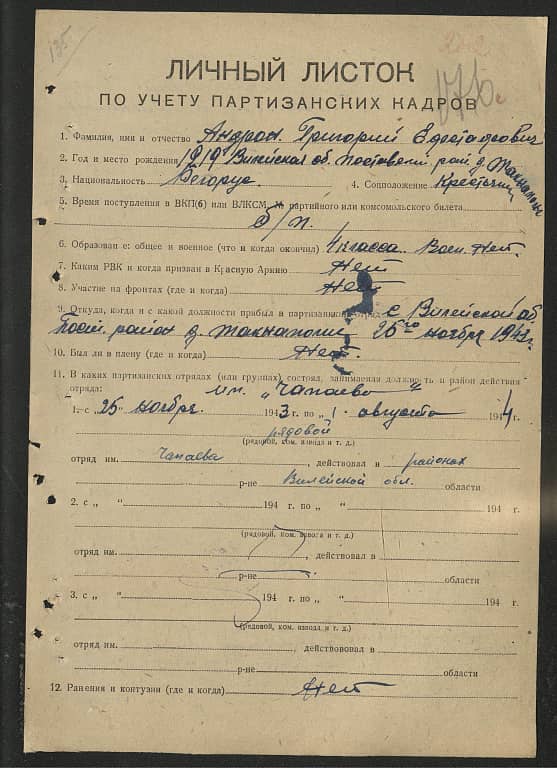 135
202
176
ЛИЧНЫЙ ЛИСТОК
ПО УЧЕТУ ПАРТИЗАНСКИХ КАДРОВ
1. Фамилия, имя и отчество Андрон Григорий
2. Год и место рождения 1919 Вилейская об. Поставский рай. д.
3. Национальность Белорус. 4. Соцположение Крестьянин
5. Время поступления в ВКП(б) или ВЛКСМ, № партийного или комсомольского билета
б/п.
6. Образован е: общее и военное (что и когда окончил) 4 класса. Воен. Нет.
7. Каким РВК и когда призван в Красную Армию Нет
8. Участие на фронтах (где и когда) Нет
9. Откуда, когда и с какой должности прибыл в партизанский отряд с Вилейской об.
Пост. район д. 25 го ноября 1943 г.
10. Был ли в плену (где и когда) Нет.
11. В каких партизанских отрядах (или группах) состоял, занимаемая должность и район действия
отряда: им. „Чапаева“
1. с „25“ ноября. 1943 г. по „1“ августа 1944 г.
рядовой
(рядовой, ком. взвода и т. д.)
отряд им. Чапаева, действовал в районах
р-не Вилейской обл. области
2. с „ “ 194 г. по „ “ 194 г.
(рядовой, ком. взвога и т. д.)
отряд им. , действовал в
р-не области
3. с „ “ 194 г. по „ “ 194 г.
(рядовой, ком. взвода и т. д.)
отряд им. , действововал в
р-не области
12. Ранения и контузии (где и когда) Нет